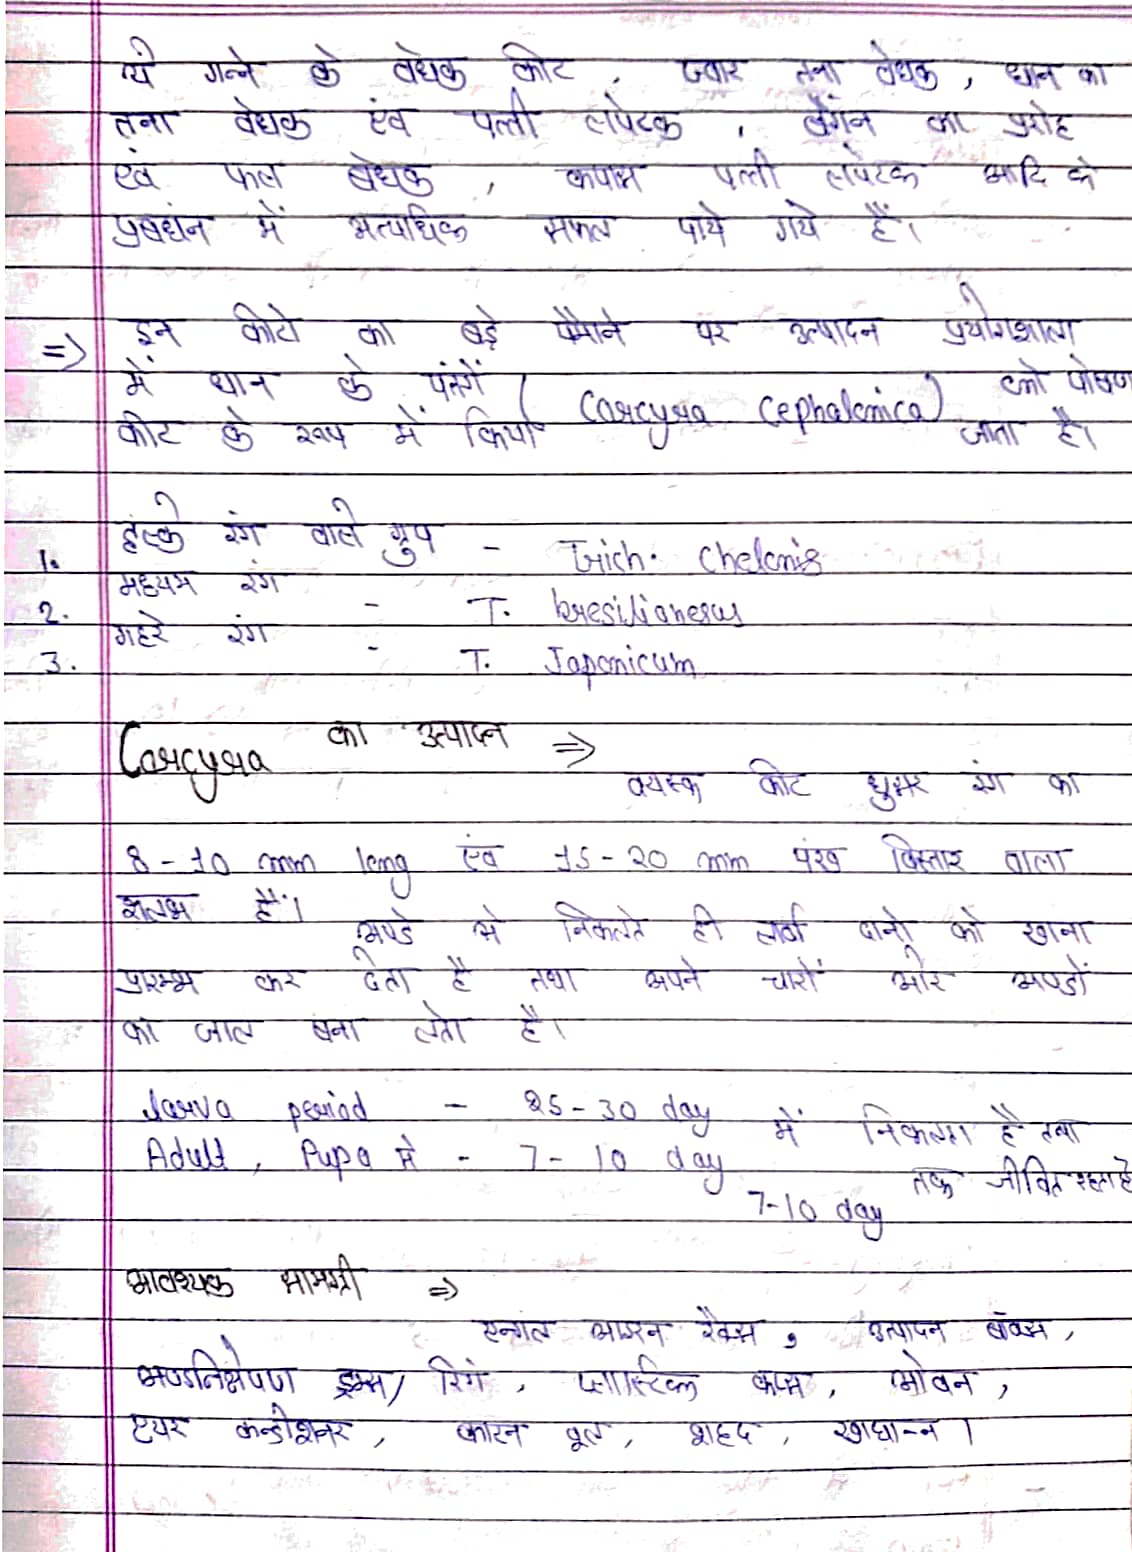 ये गन्ने के वेधक कीट, ज्वार तना वेधक, धान का
तना वेधक एंव पत्ती लपेटक, बैंगन का प्ररोह
एंव फल बेधक, कपास पत्ती लपेटक आदि के
प्रबधंन में अत्याधिक सफल पाये गये हैं।
=> इन कीटो का बड़े पैमाने पर उत्पादन प्रयोगशाला
में धान के पंतगें (Corcyra Cephalonica) को पोषण
कीट के रूप में किया जाता है।
1. हल्के रंग वाले ग्रुप - Trich. Chelonis
2. मध्यम रंग - T. bresilianesus
3. गहरे रंग - T. Japonicum
Corcyra का उत्पादन =>
वयस्क कीट धुसर रंग का
8-10 mm long एंव 15-20 mm पंख विस्तार वाला
शलभ हैं।
अण्डे से निकलते ही लार्वा दानो को खाना
प्रारम्भ कर देता है तथा अपने चारों ओर अण्डों
का जाल बना लेता है।
Larva period - 25-30 day
Adult, Pupa से - 7-10 day में निकलता है तथा
7-10 day तक जीवित रहता है
आवश्यक सामग्री =>
एन्गल आयरन रैक्स, उत्पादन बॉक्स,
अण्डनिक्षेपण ड्रम्स/रिंग, प्लास्टिक कप्स, ओवन,
एयर कन्डीशनर, काटन वूल, शहद, खाधान्न।